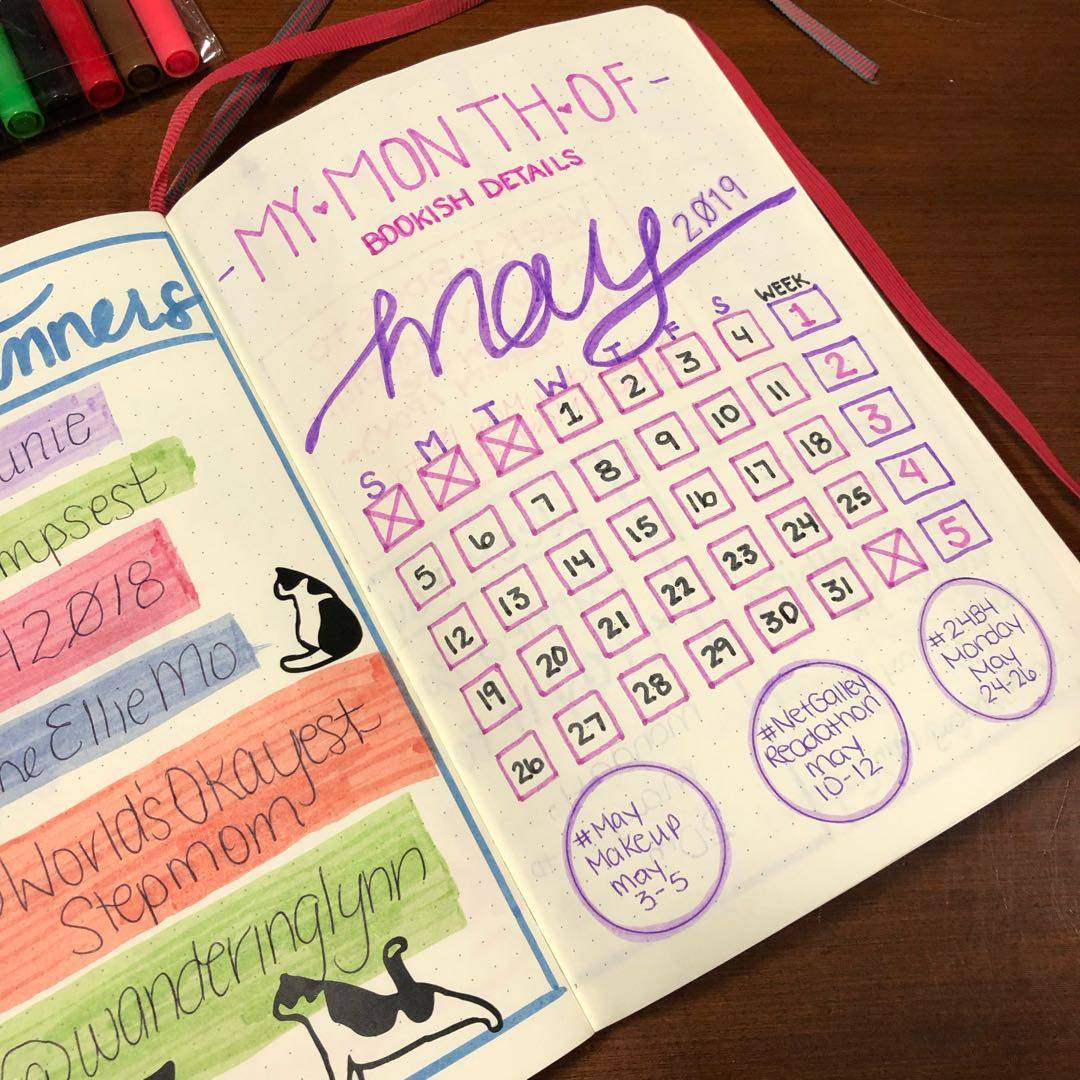 unie
mpsest
2018
EllieMo
World's Okayest
Stepmom
@wanderinglynn
-MY·MONTH·OF-
BOOKISH DETAILS
may 2019
S M T W T F S WEEK
1 2 3 4 1
5 6 7 8 9 10 11 2
12 13 14 15 16 17 18 3
19 20 21 22 23 24 25 4
26 27 28 29 30 31 5
#May
Makeup
may
3-5
#NetGalley
Readathon
may
10-12
#24B4
Monday
May
24-26